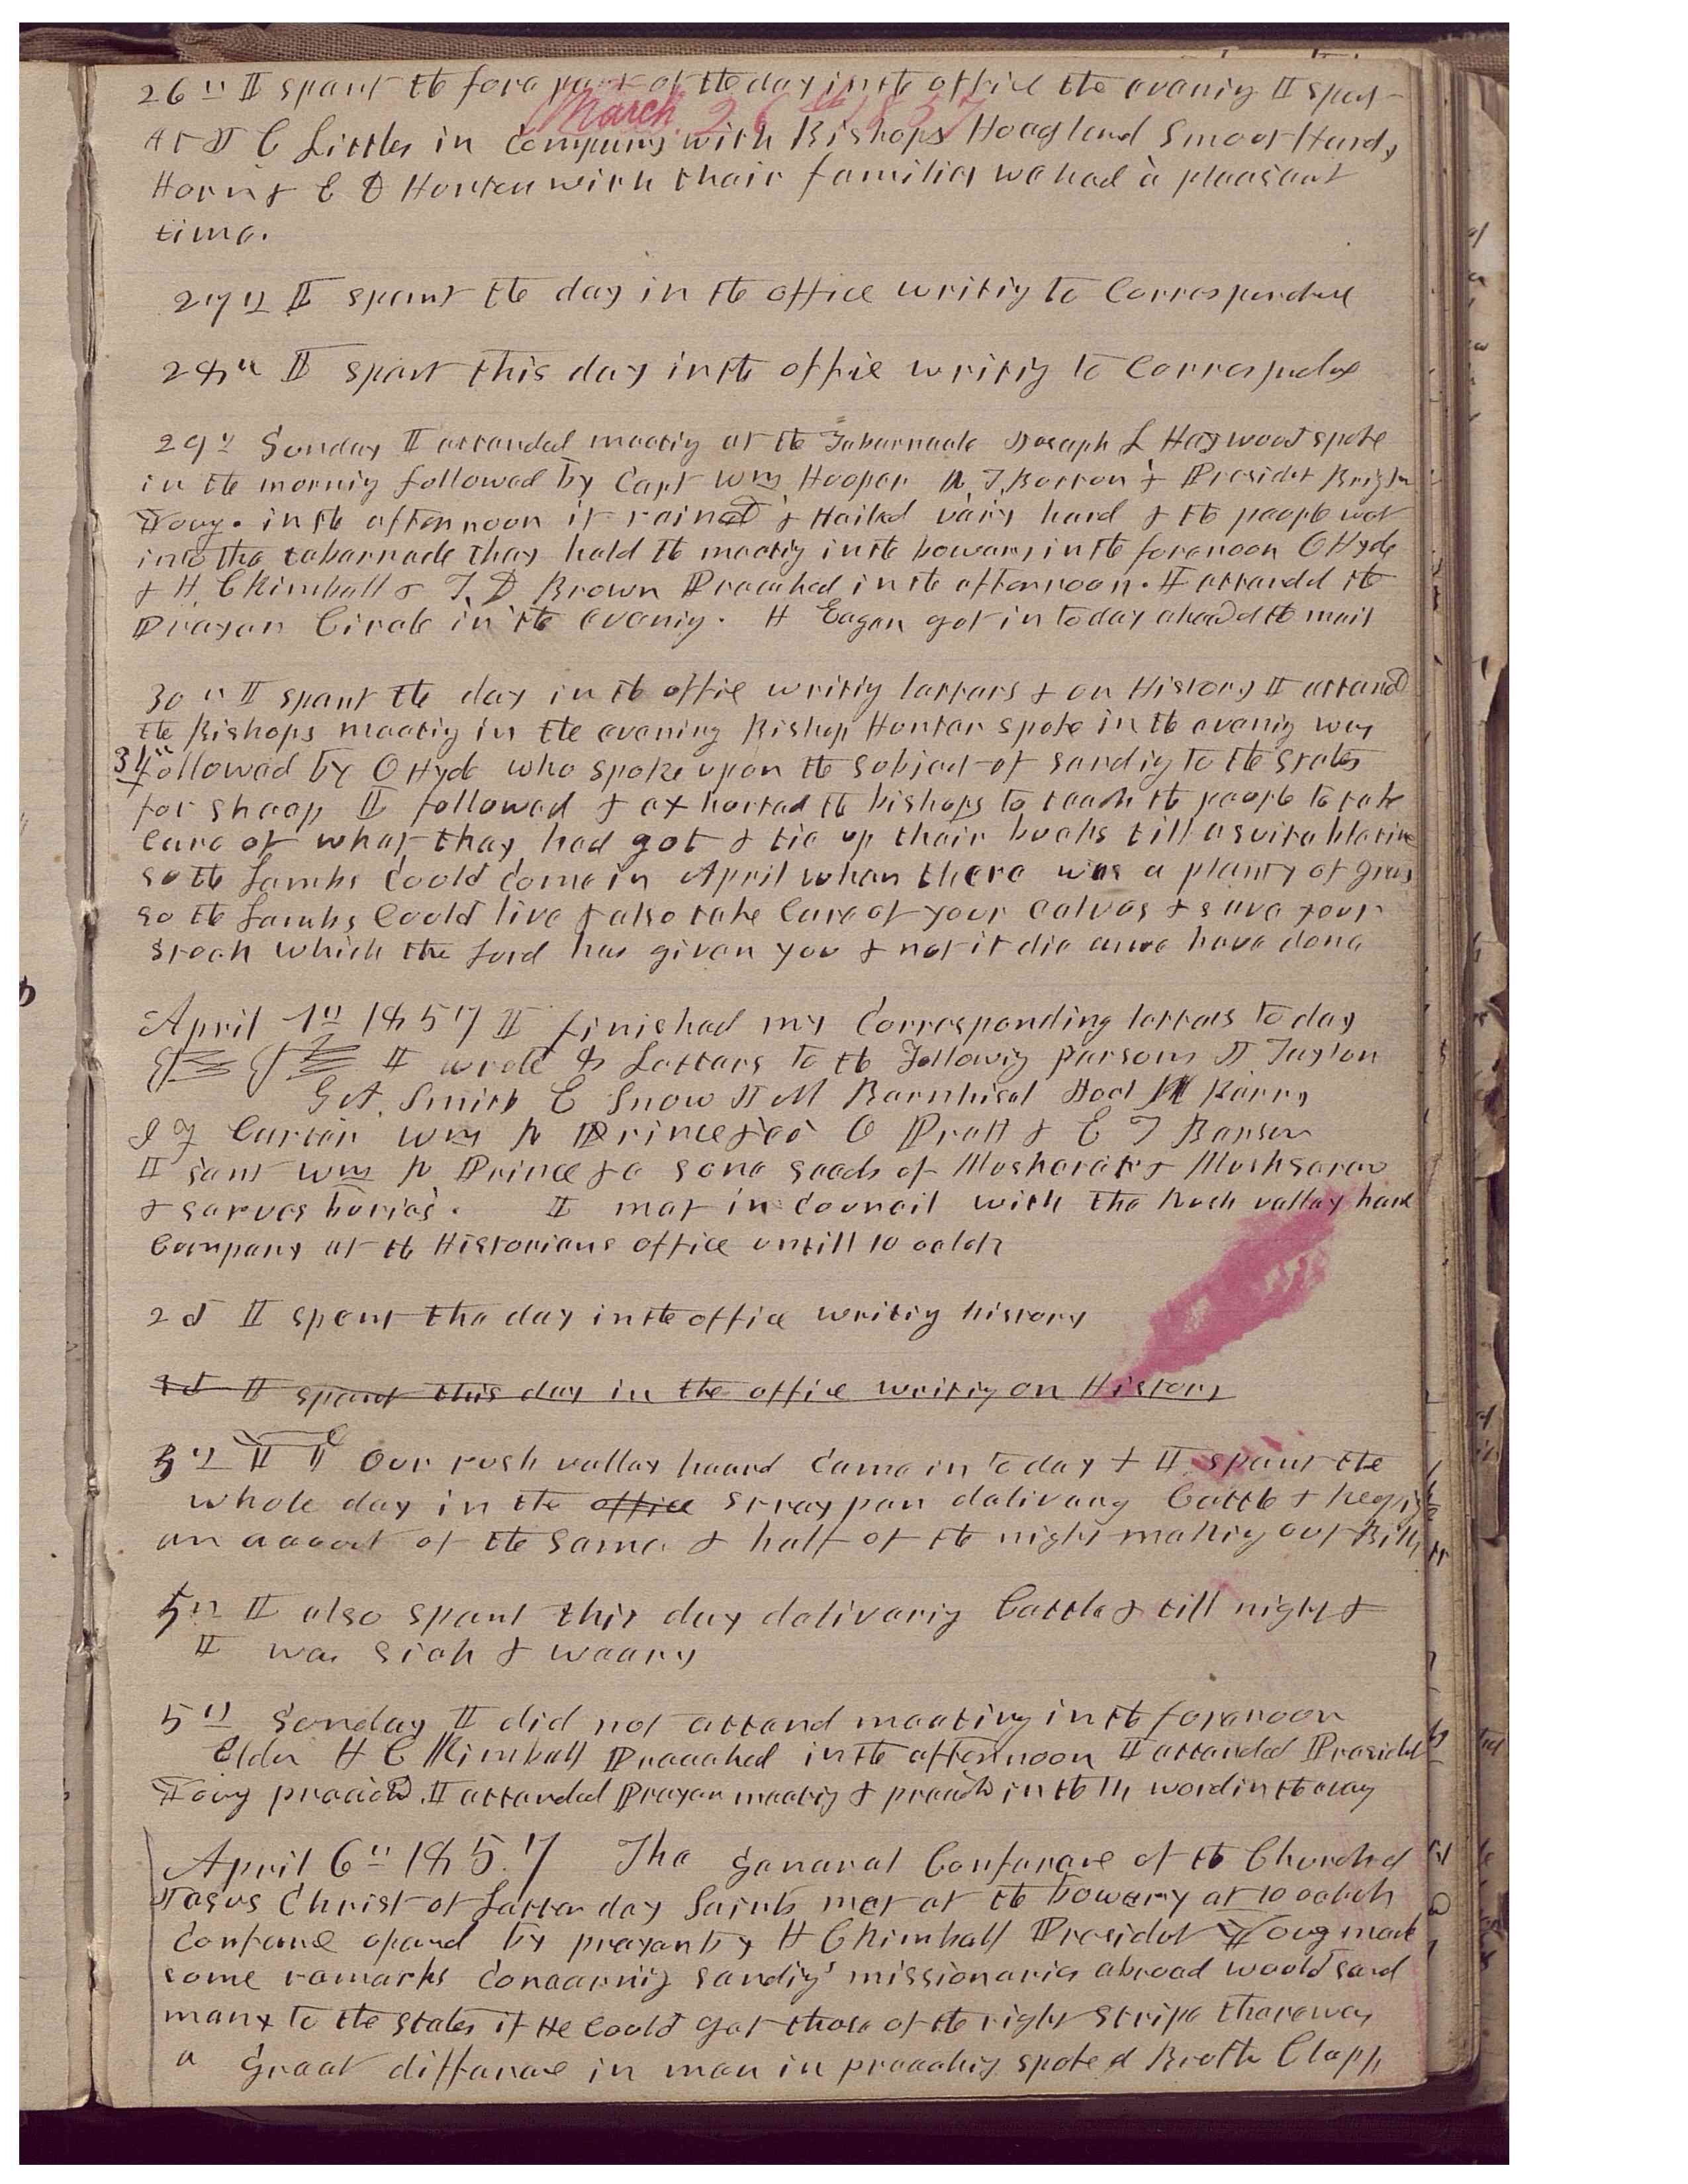 26th I spent the fore part of the day in the office the evening I spent
March 26th 1857
At J C Littles in Company with Bishops Hoagland Smoot Hardy
Horn & E D Hunter with their families we had a pleasant
time.
27th I spent the day in the office writing to Correspondence
28th I spent this day in the office writing to Correspondece
29th Sunday I attended meeting at the Tabernacle Joseph L Haywood spoke
in the morning followed by Capt Wm Hooper T. Burton & President Brigham
Young. in the afternoon it rained & Hailed very hard & the people wet
into the tabernacle they held the meeting in the bowery in the forenoon O Hyde
& H. C Kimball & T. D Brown Preached in the afternoon. I attended the
Prayer Circle in the evening. H Eagan got in today ahead of the mail
30th I spent the day in the office writing letters & on History I attend
the Bishops meeting in the evening Bishop Hunter spoke in the evening was
31st followed by O Hyde who spoke upon the subject of sending to the States
for sheep I followed & exhorted the bishops to teach the people to take
care of what they had got & tie up their bucks till a suitable time
so the Lambs could come in April when there was a plenty of grass
so the Lambs could live & also take care of your calves & save your
stock which the Lord has given you & not it die as we have done
April 1st 1857 I finished my Corresponding letters to day
I wrote 8 Letters to the Following persons J Taylor
G A. Smith E Snow J M Barnhisel Hod Berry
I F Carter Wm R Prince & co O Pratt & E T Benson
I sent Wm R Prince & co some seeds of &
& sarves buries. I met in council with the Rush valley herd
Company at the Historians office untill 10 oclok
2d I spent the day in the office writing history
3d I spent this day in the office writing on History
3rd I I Our rush valley heard came in to day & I spent the
whole day in the office stray pen delivering Cattle & keeping
an account of the same & half of the night making out Bills
5th I also spent this day delivering Cattle & till night &
I was sick & weary
5th Sunday I did not attend meeting in the forenoon
Elder H C Kimball Preached in the afternoon I attended President
Young preach. I attended Prayer meeting & preach in the 14 word in the eveng
April 6th 1857 The general Conference of the Church of
Jesus Christ of Latter day Saints met at the bowery at 10 oclock
Conference opened by prayer by H C Kimball President Young made
some remarks concerning sending missionaries abroad would send
many to the states if He could get those of the right stripe there was
a great differance in men in preaching spoke of Broth Clapp